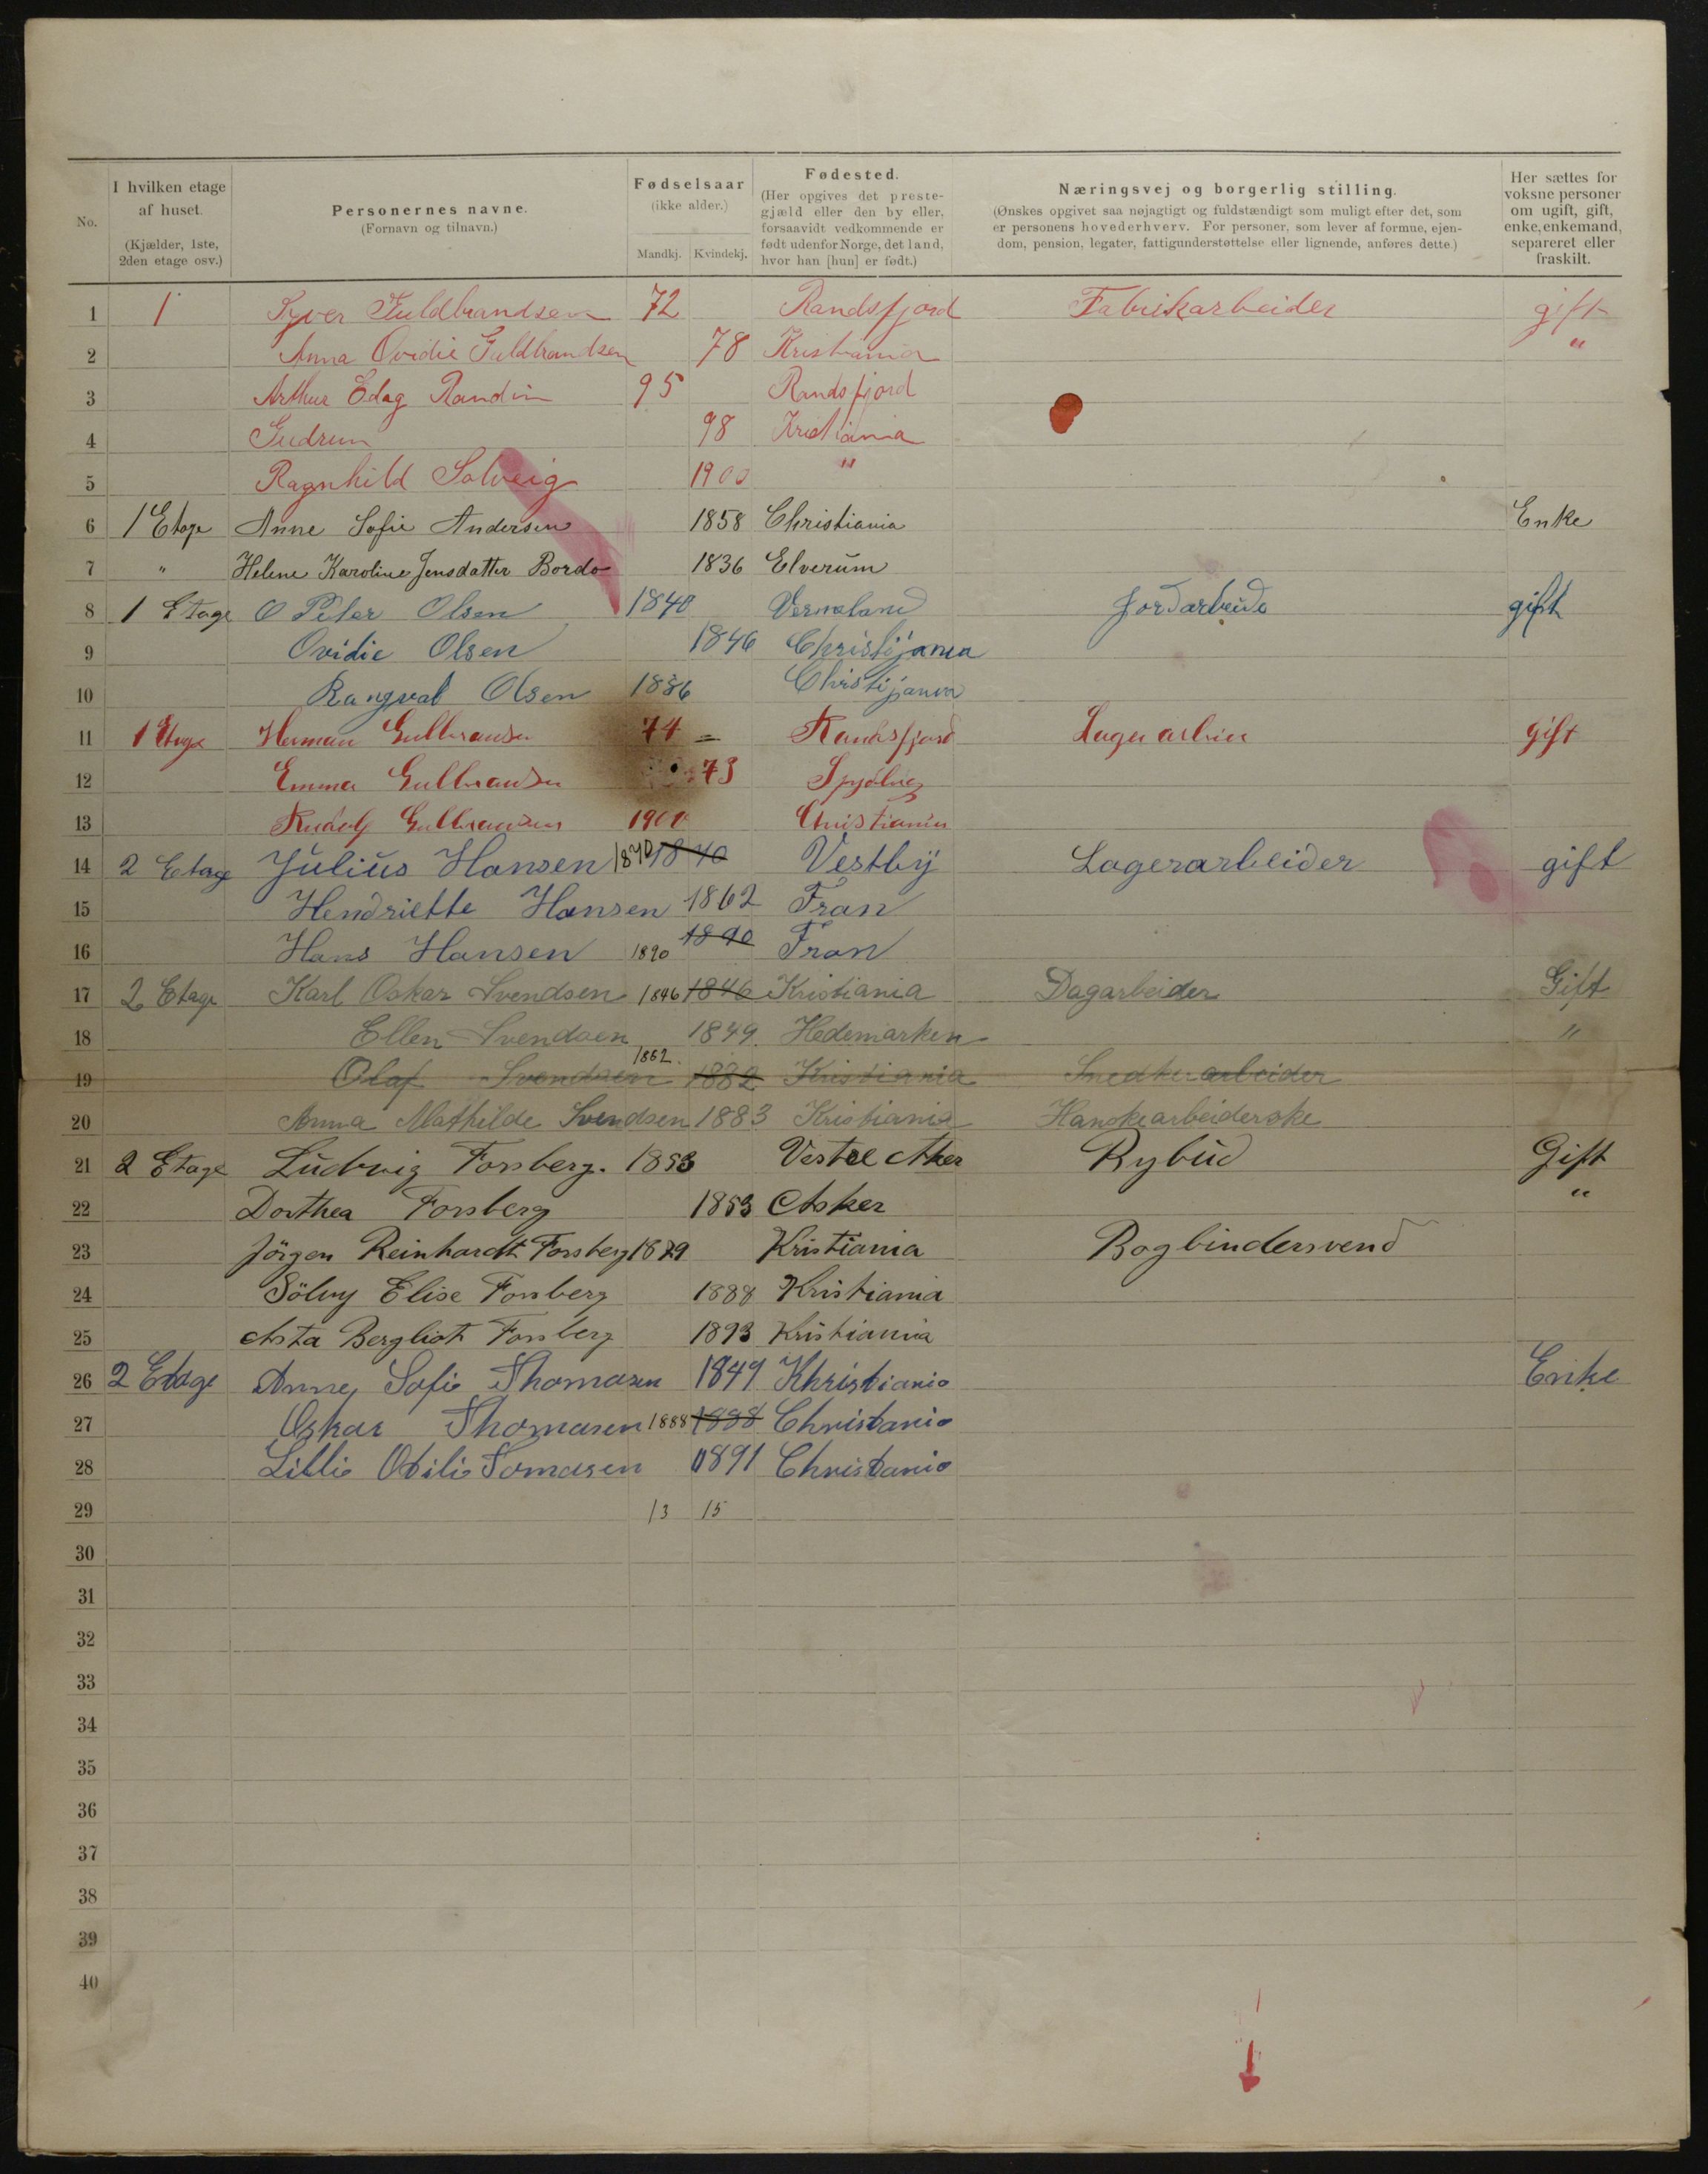 No.
I hvilken etage af huset.
(Kjælder, 1ste, 2den etage osv.)
Personernes navne.
(Fornavn og tilnavn.)
Fødselsaar
(ikke alder.)
Mandkj. Kvindekj.
Fødested.
(Her opgives det prestegjæld eller den by eller, forsaavidt vedkommende er født udenfor Norge, det land, hvor han [hun] er født.)
Næringsvej og borgerlig stilling.
(Ønskes opgivet saa nøjagtigt og fuldstændigt som muligt efter det, som er personens hovederhverv. For personer, som lever af formue, ejendom, pension, legater, fattigunderstøttelse eller lignende, anføres dette.)
Her sættes for voksne personer om ugift, gift, enke, enkemand, separeret eller fraskilt.
1 1 Syver Guldbrandsen 72 Randsfjord Fabrikarbeider gift
2 Anna Ovidie Guldbrandsen 78 Kristiania "
3 Arthur Edag Randin 95 Randsfjord
4 Gudrun 98 Kristiania
5 Ragnhild Solveig 1900 "
6 1 Etage Anne Sofie Andersen 1858 Christiania Enke
7 " Helene Karoline Jensdatter Bordo 1836 Elverum
8 1 Etage O Peter Olsen 1840 Vermeland Jordarbeide gift
9 Ovidie Olsen 1846 Christijania
10 Rangval Olsen 1886 Christijania
11 1 Etage Herman Gulbransen 74 = Randsfjord Lagerarbeier gift
12 Emma Gulbransen 73
13 Rudolf Gulbransen 1900 Christiania
14 2 Etage Julius Hansen 1840 1840 Vestby Lagerarbeider gift
15 Hendriette Hansen 1862 Fran
16 Hans Hansen 1890 1890 Fron
17 2 Etage Karl Oskar Svendsen 1846 1846 Kristiania Dagarbeider Gift
18 Ellen Svendsen 1849. Hedemarken "
19 Olaf Svendsen 1862. 1882 Kristiania Snedkerarbeider
20 Anna Mathilde Svendsen 1883 Kristiania Hanskearbeiderske
21 2 Etage Ludvig Forsberg. 1853 Vestre Aker Rybud Gift
22 Dorthea Forsberg 1853 Asker "
23 Jörgen Reinhardt Forsberg 1879 Kristiania Bogbindersvend
24 Sölvy Elise Forsberg 1888 Kristiania
25 Asta Bergliot Forsberg 1893 Kristiania
26 2 Etage Anne Sofie Thomasen 1849 Khristiania Enke
27 Oskar Thomasen 1888 1888 Christania
28 Lillie Otilie Tomasen 1891 Christania
29 13 15
30
31
32
33
34
35
36
37
38
39
40